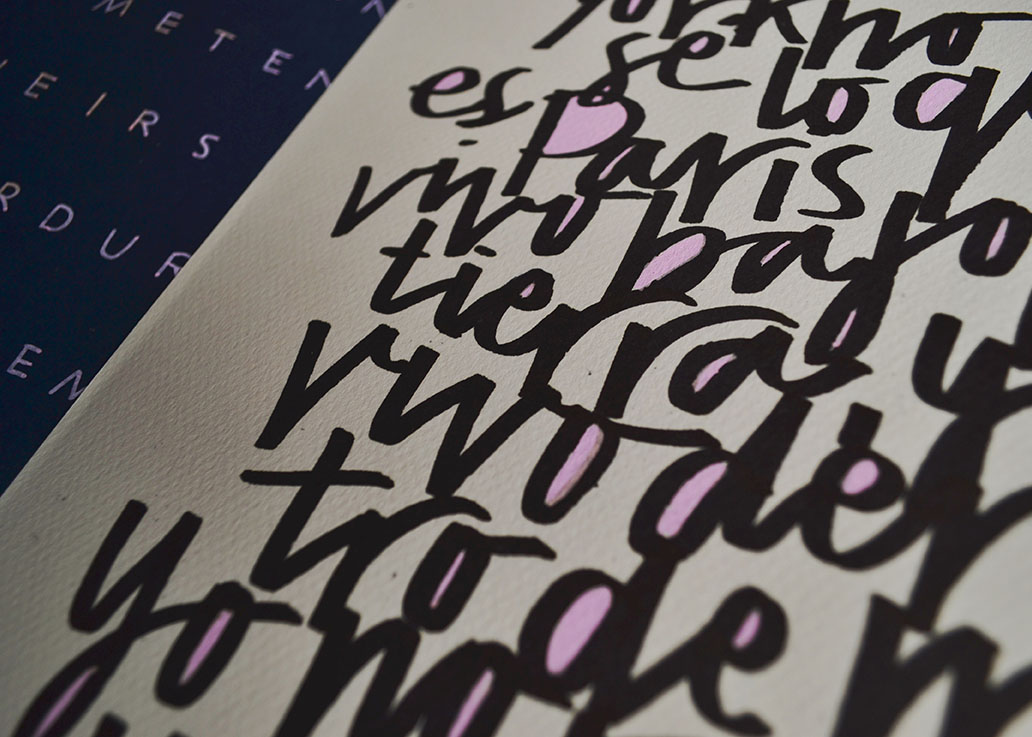 METEN
EIRS
RDUR
EN
yorkno
se lo q
es Paris
vivo bajo
tierra y
vivo de
tro
yo no de m